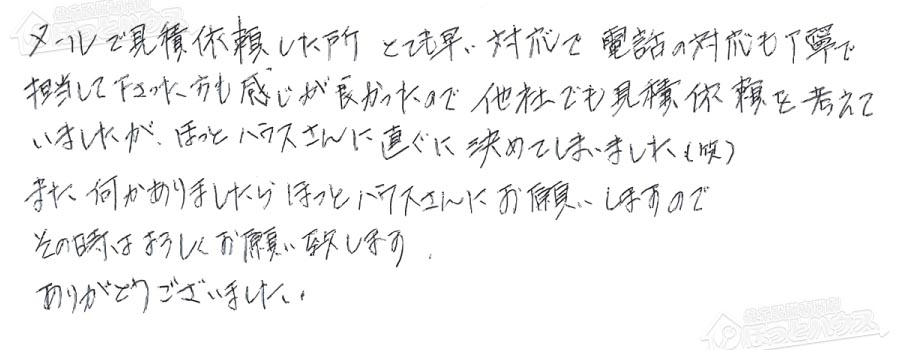 メールで見積依頼した所 とても早い対応で 電話の対応も丁寧で
担当して下さった方も感じが良かったので 他社でも見積依頼を考えて
いましたが、ほっとハウスさんに直ぐに決めてしまいました(笑)
また何かありましたらほっとハウスさんにお願いしますので
その時はよろしくお願い致します.
ありがとうございました。
ほっとハウス